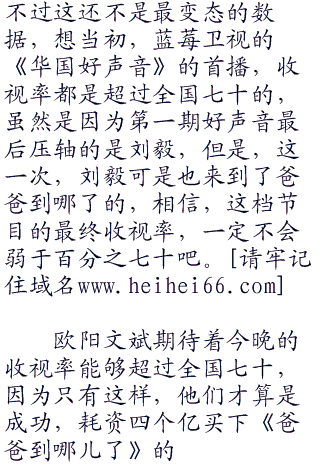 不过这还不是最变态的数
据，想当初，蓝莓卫视的
《华国好声音》的首播，收
视率都是超过全国七十的，
虽然是因为第一期好声音最
后压轴的是刘毅，但是，这
一次，刘毅可是也来到了爸
爸到哪了的，相信，这档节
目的最终收视率，一定不会
弱于百分之七十吧。[请牢记
住域名www.heihei66.com]
欧阳文斌期待着今晚的
收视率能够超过全国七十，
因为只有这样，他们才算是
成功，耗资四个亿买下《爸
爸到哪儿了》的